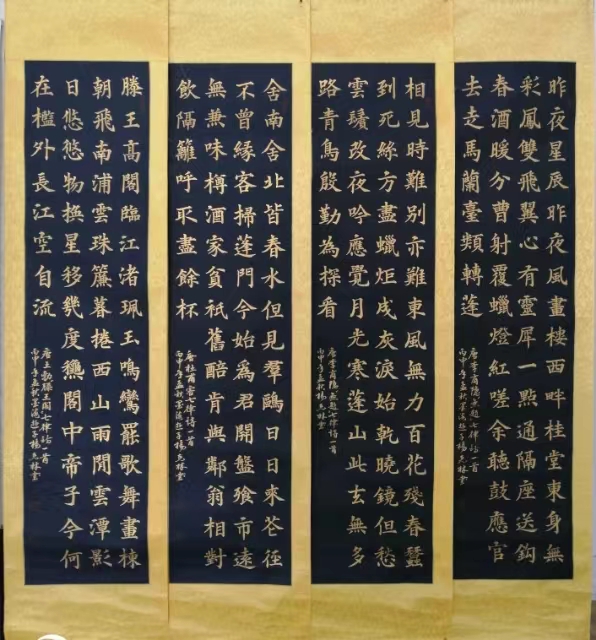 昨夜星辰昨夜風畫樓西畔桂堂東身無
彩鳳雙飛翼心有靈犀一點通隔座送鈎
春酒暖分曹射覆蠟燈紅嗟余聽鼓應官
去走馬蘭臺類轉蓬
唐李商隱無題七律詩一首
丙申年孟秋墨海遊子楊林書
相見時難别亦難東風無力百花殘春蠶
到死絲方盡蠟炬成灰淚始乾曉鏡但愁
雲鬢改夜吟應覺月光寒蓬山此去無多
路青鳥殷勤為探看
唐李商隱無題七律詩一首
丙申年孟秋墨海遊子楊林書
舍南舍北皆春水但見羣鷗日日來花徑
不曾緣客掃蓬門今始為君開盤飧市遠
無兼味樽酒家貧祇舊醅肯與鄰翁相對
飲隔籬呼取盡餘杯
唐杜甫客七律詩一首
丙申年孟秋墨海遊子楊林書
滕王高閣臨江渚珮玉鳴鸞罷歌舞畫棟
朝飛南浦雲珠簾暮捲西山雨閒雲潭影
日悠悠物換星移幾度龝閣中帝子今何
在檻外長江空自流
唐王勃滕王閣七律詩一首
丙申年孟秋墨海遊子楊林書